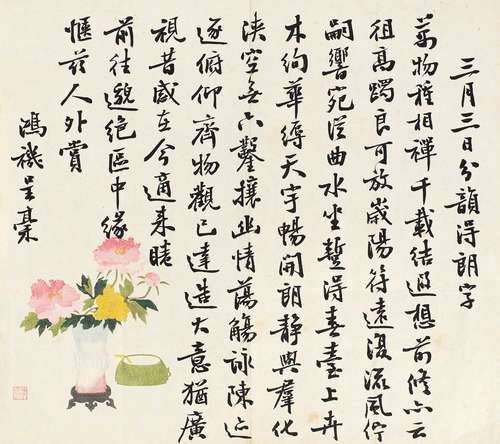 三月三日分韻得朗字
萬物種相禪千載結遐想前修亦云
徂高躅良可放歲陽符遠流風佇
嗣響宛從曲水坐蹔得春臺上卉
木絢華縟天宇暢開朗靜與羣化
浹空無六鑿攘幽情蕩觴詠陳迹
逐俯仰齊物觀已達造大意猶廣
視昔感在今適來睹
前往邈絕區中緣
愜茲人外賞
鴻禨呈稾